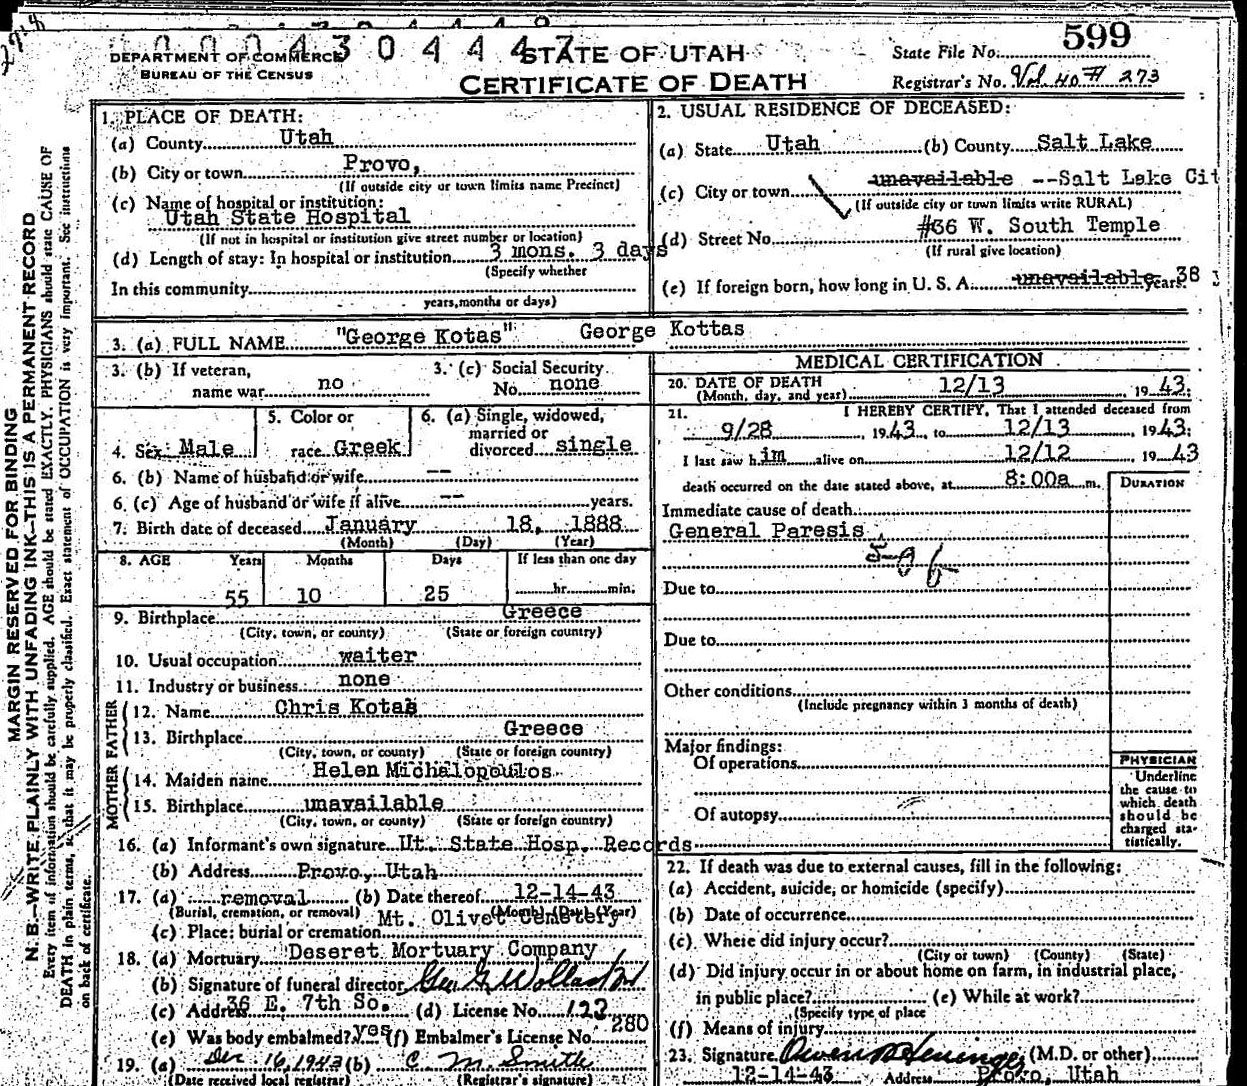 0 0 0 4 3 0 4 4 4 7
599
DEPARTMENT OF COMMERCE STATE OF UTAH State File No.
BUREAU OF THE CENSUS CERTIFICATE OF DEATH Registrar's No. Vol. 40 # 273
MARGIN RESERVED FOR BINDING
N. B.—WRITE PLAINLY WITH UNFADING INK—THIS IS A PERMANENT RECORD
Every item of information should be carefully supplied. AGE should be stated EXACTLY. PHYSICIANS should state CAUSE OF
DEATH in plain terms, so that it may be properly classified. Exact statement of OCCUPATION is very important. See instructions
on back of certificate.
1. PLACE OF DEATH:
(a) County Utah
(b) City or town Provo,
(If outside city or town limits name Precinct)
(c) Name of hospital or institution:
Utah State Hospital
(If not in hospital or institution give street number or location)
(d) Length of stay: In hospital or institution 3 mons. 3 days
(Specify whether
In this community
years, months or days)
2. USUAL RESIDENCE OF DECEASED:
(a) State Utah (b) County Salt Lake
(c) City or town unavailable --Salt Lake Cit
(If outside city or town limits write RURAL)
(d) Street No. #36 W. South Temple
(If rural give location)
(e) If foreign born, how long in U. S. A. unavailable years. 38
3. (a) FULL NAME "George Kotas" George Kottas
3. (b) If veteran, 3. (c) Social Security
name war no No. none
4. Sex Male 5. Color or race Greek
6. (a) Single, widowed, married or divorced single
6. (b) Name of husband or wife --
6. (c) Age of husband or wife if alive -- years.
7. Birth date of deceased January 18, 1888
(Month) (Day) (Year)
8. AGE Years Months Days If less than one day
55 10 25 hr. min.
9. Birthplace Greece
(City, town, or county) (State or foreign country)
10. Usual occupation waiter
11. Industry or business none
FATHER
12. Name Chris Kotas
13. Birthplace Greece
(City, town, or county) (State or foreign country)
MOTHER
14. Maiden name Helen Michalopoulos
15. Birthplace unavailable
(City, town, or county) (State or foreign country)
16. (a) Informant's own signature Ut. State Hosp. Records
(b) Address Provo, Utah
17. (a) removal (b) Date thereof 12-14-43
(Burial, cremation, or removal) (Month) (Day) (Year)
(c) Place: burial or cremation Mt. Olivet Cemetery
18. (a) Mortuary Deseret Mortuary Company
(b) Signature of funeral director
(c) Address 36 E. 7th So. (d) License No. 122
(e) Was body embalmed? yes (f) Embalmer's License No. 280
19. (a) Dec. 16, 1943 (b) C. M. Smith
(Date received local registrar) (Registrar's signature)
MEDICAL CERTIFICATION
20. DATE OF DEATH 12/13 1943
(Month, day, and year)
21. I HEREBY CERTIFY, That I attended deceased from
9/28 1943, to 12/13 1943;
I last saw him alive on 12/12 1943
death occurred on the date stated above, at 8:00a m.
DURATION
Immediate cause of death
General Paresis
Due to
Due to
Other conditions
(Include pregnancy within 3 months of death)
Major findings:
Of operations
Of autopsy
PHYSICIAN
Underline
the cause to
which death
should be
charged sta-
tistically.
22. If death was due to external causes, fill in the following:
(a) Accident, suicide, or homicide (specify)
(b) Date of occurrence
(c) Where did injury occur?
(City or town) (County) (State)
(d) Did injury occur in or about home on farm, in industrial place,
in public place? (e) While at work?
(Specify type of place
(f) Means of injury
23. Signature (M.D. or other)
12-14-43 Address Provo, Utah